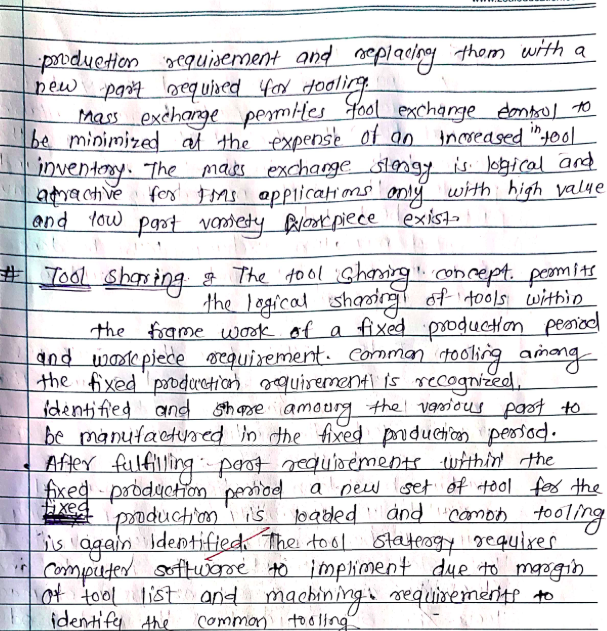 production requirement and replacing them with a
new part required for tooling.
Mass exchange permites tool exchange control to
be minimized at the expense of an increased in tool
inventory. The mass exchange stargy is logical and
attractive for FMS applications only with high value
and low part variety workpiece exist.
# Tool sharing : The tool sharing concept permits
the logical sharing of tools within
the frame work of a fixed production period
and workpiece requirement. common tooling among
the fixed production requirement is recognized,
identified and share amoung the various part to
be manufactured in the fixed production period.
After fulfilling part requirements within the
fixed production period a new set of tool for the
fixed production is loaded and comon tooling
is again identified. The tool stateogy requires
computer software to impliment due to margin
of tool list and machining requirements to
identify the common tooling